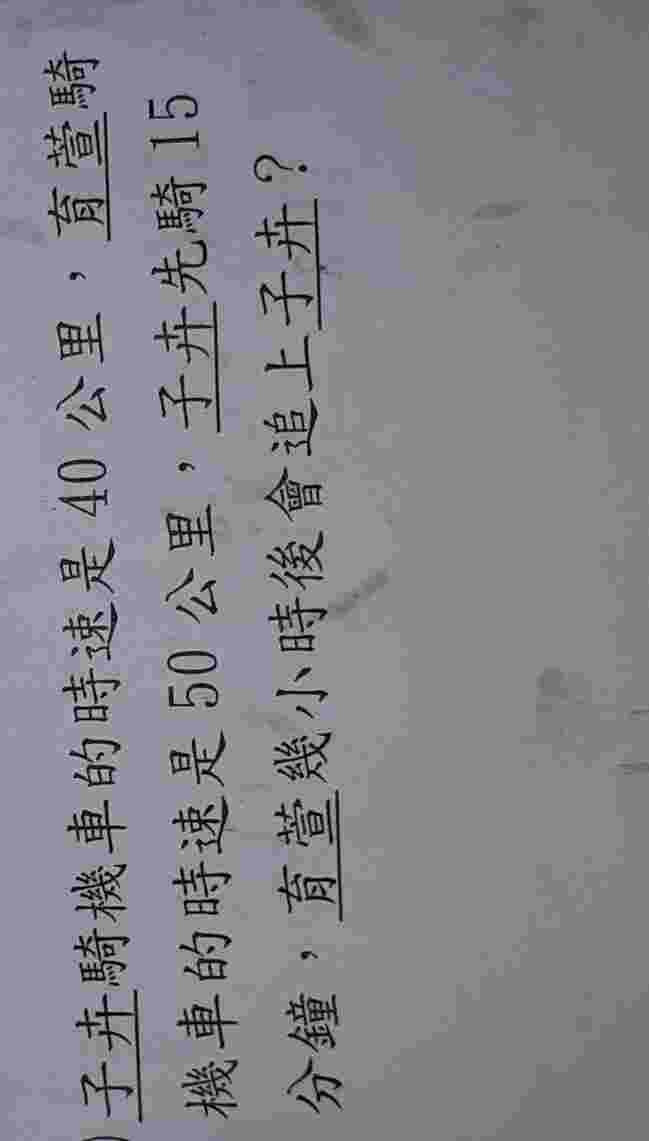 ) 子卉騎機車的時速是 40 公里，育萱騎
機車的時速是 50 公里，子卉先騎 15
分鐘，育萱幾小時後會追上子卉？